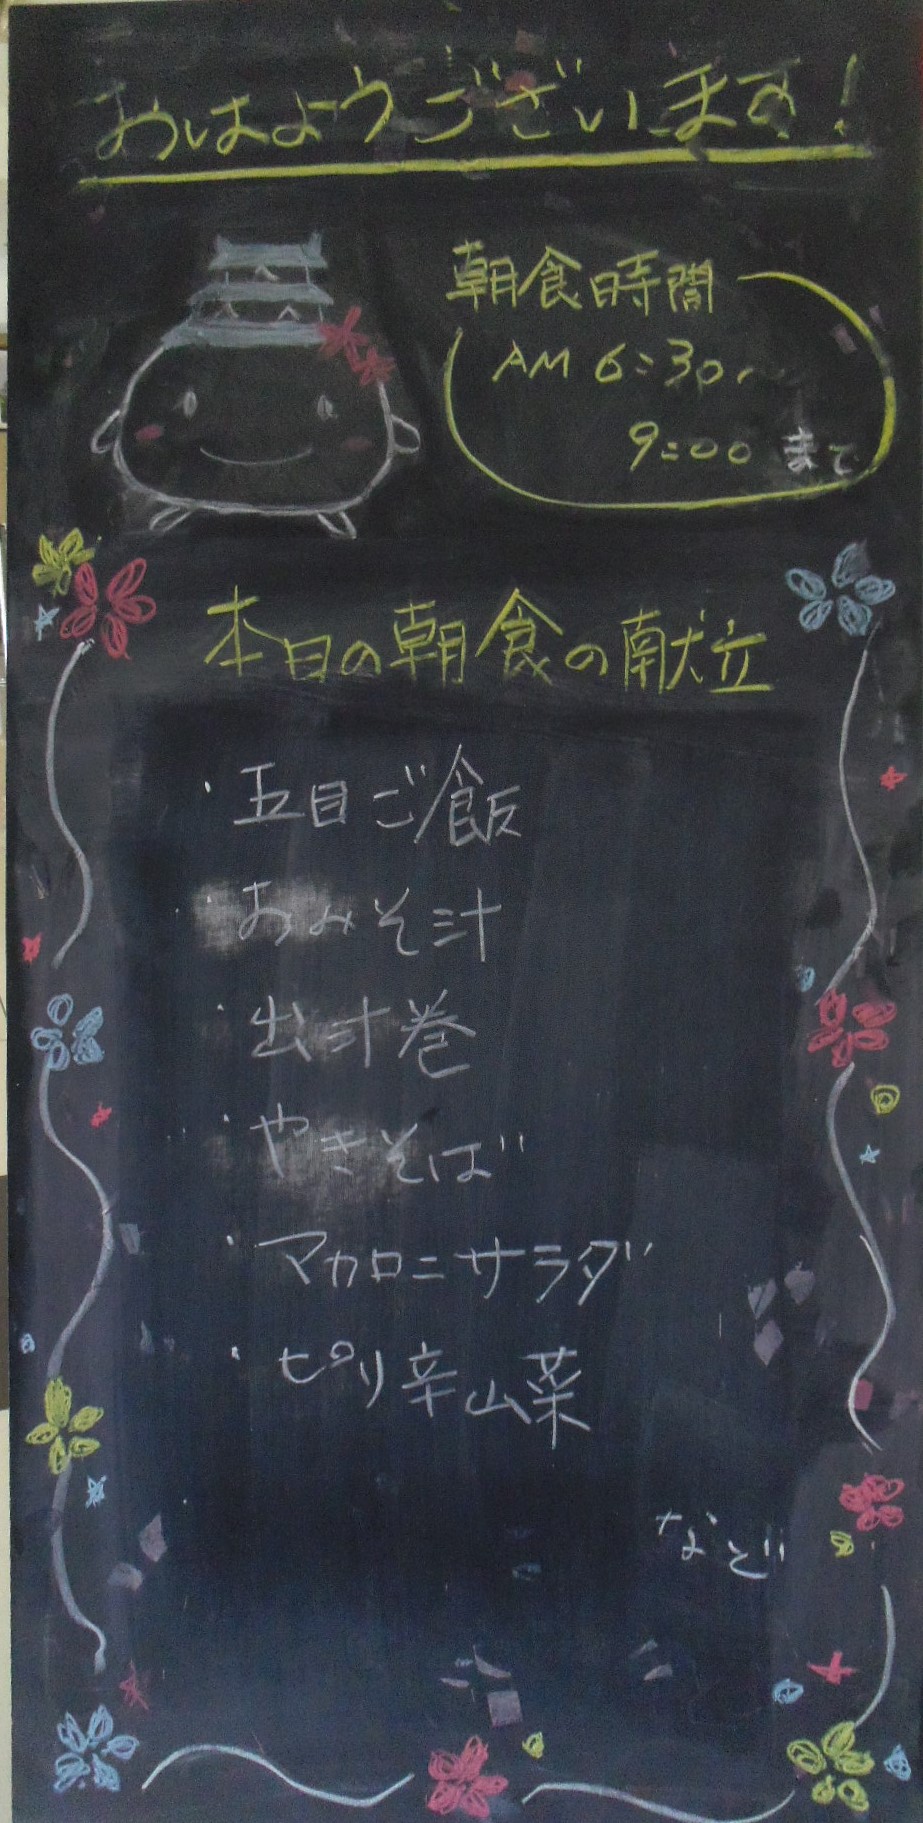 おはようございます!
朝食時間
AM 6:30～
9:00 まで
本日の朝食の献立
・五目ご飯
・おみそ汁
・出汁巻
・やきそば
・マカロニサラダ
・ピリ辛山菜
など